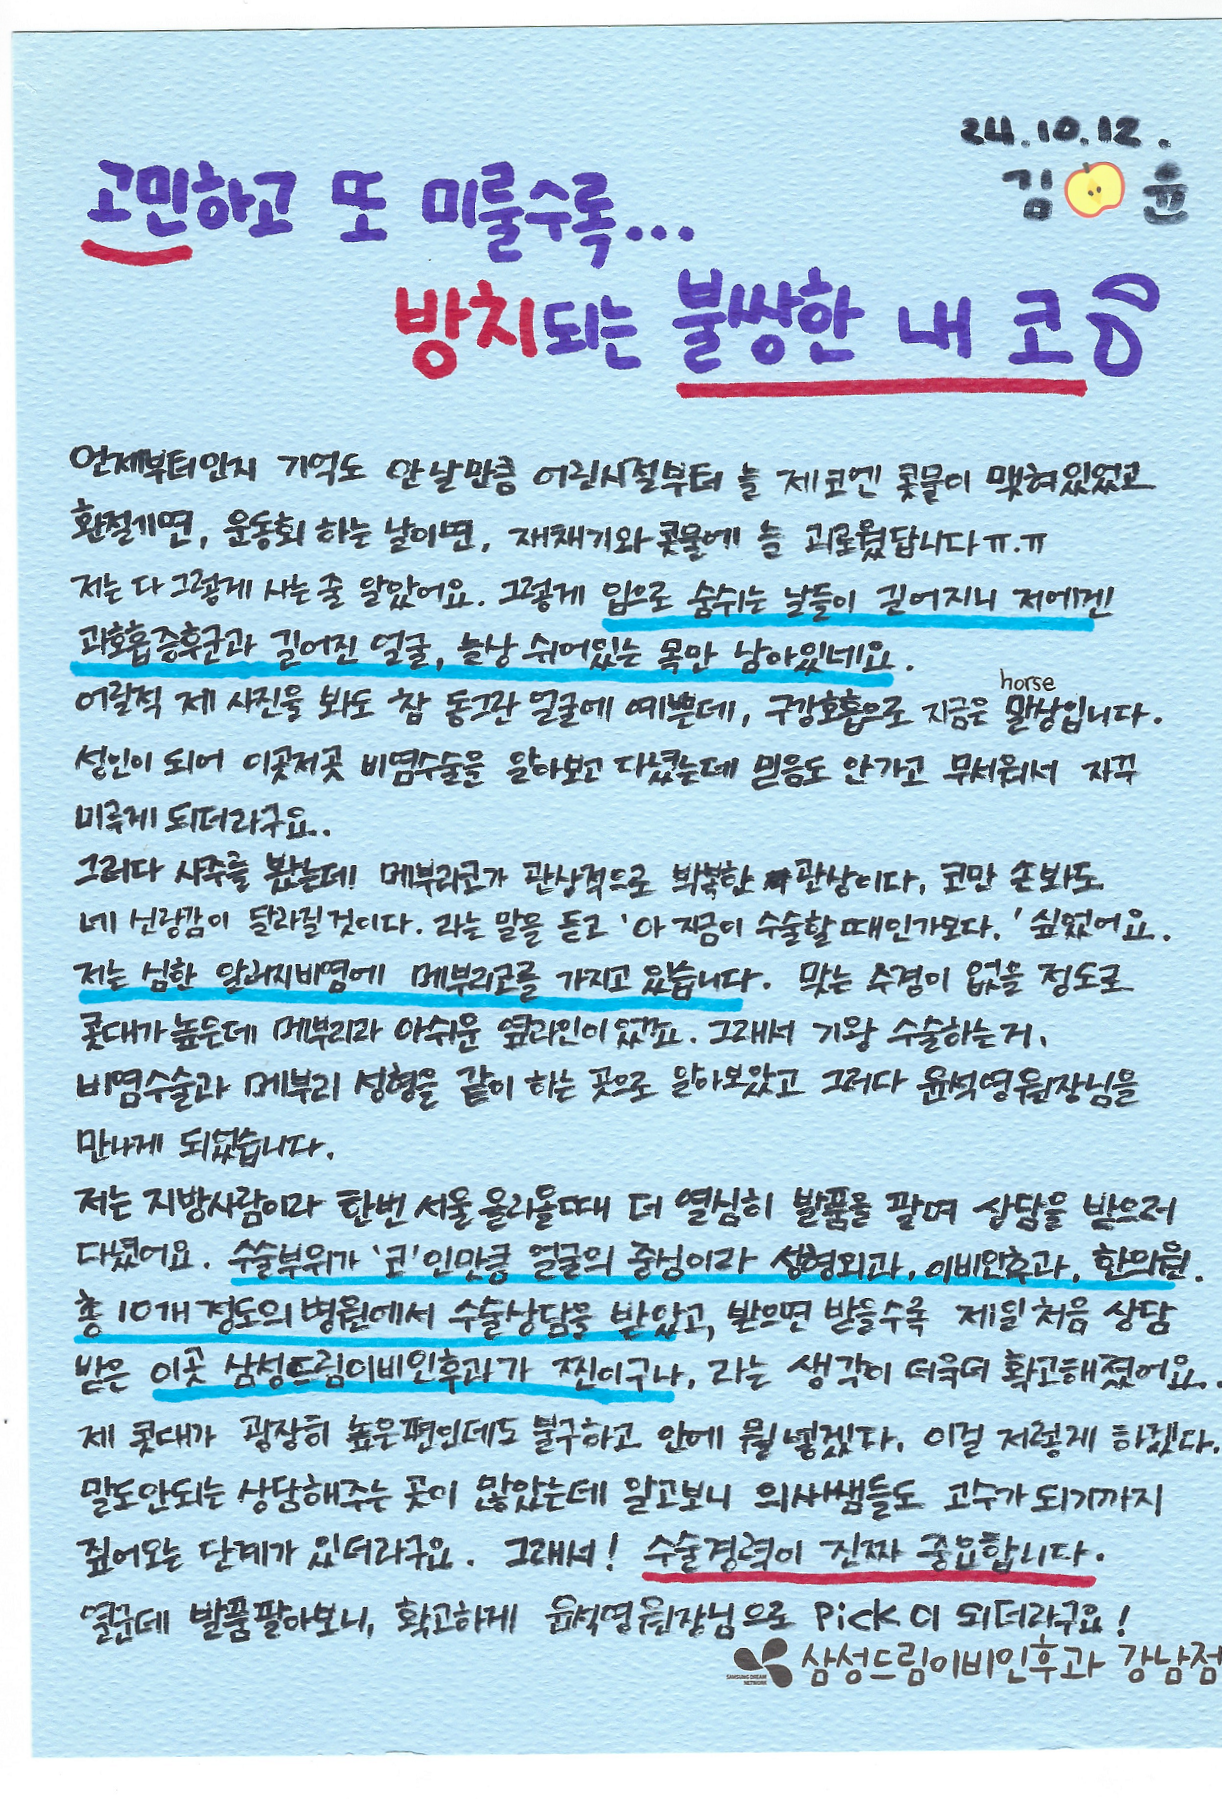 24.10.12.
김 윤
고민하고 또 미룰수록...
방치되는 불쌍한 내 코
언제부터인지 기억도 안 날만큼 어린시절부터 늘 제 코엔 콧물이 맺혀있었고
환절기면, 운동회 하는 날이면, 재채기와 콧물에 늘 괴로웠답니다ㅠ.ㅠ
저는 다 그렇게 사는 줄 알았어요. 그렇게 입으로 숨쉬는 날들이 길어지니 저에겐
과호흡증후군과 길어진 얼굴, 늘상 쉬어있는 목만 남아있네요.
horse
어릴적 제 사진을 봐도 참 동그란 얼굴에 예쁜데, 구강호흡으로 지금은 말상입니다.
성인이 되어 이곳저곳 비염수술을 알아보고 다녔는데 믿음도 안가고 무서워서 자꾸
미루게 되더라구요..
그러다 사주를 봤는데! 메부리코가 관상적으로 박복한 관상이다, 코만 손봐도
네 신랑감이 달라질것이다. 라는 말을 듣고 '아 지금이 수술할 때인가보다.' 싶었어요.
저는 심한 알러지비염에 메부리코를 가지고 있습니다. 맞는 수경이 없을 정도로
콧대가 높은데 메부리라 아쉬운 옆라인이 있었죠. 그래서 기왕 수술하는거,
비염수술과 메부리 성형을 같이 하는 곳으로 알아보았고 그러다 윤석영원장님을
만나게 되었습니다.
저는 지방사람이라 한번 서울 올라올때 더 열심히 발품을 팔며 상담을 받으러
다녔어요. 수술부위가 '코'인만큼 얼굴의 중심이라 성형외과, 이비인후과, 한의원.
총 10개 정도의 병원에서 수술상담을 받았고, 받으면 받을수록 제일 처음 상담
받은 이곳 삼성드림이비인후과가 찐이구나, 라는 생각이 더욱더 확고해졌어요.
제 콧대가 굉장히 높은편인데도 불구하고 안에 뭘 넣겠다, 이걸 저렇게 하겠다.
말도안되는 상담해주는 곳이 많았는데 알고보니 의사쌤들도 고수가 되기까지
짚어오는 단계가 있더라구요. 그래서! 수술경력이 진짜 중요합니다.
열군데 발품팔아보니, 확고하게 윤석영원장님으로 Pick이 되더라구요!
SAMSUNG DREAM NETWORK 삼성드림이비인후과 강남점